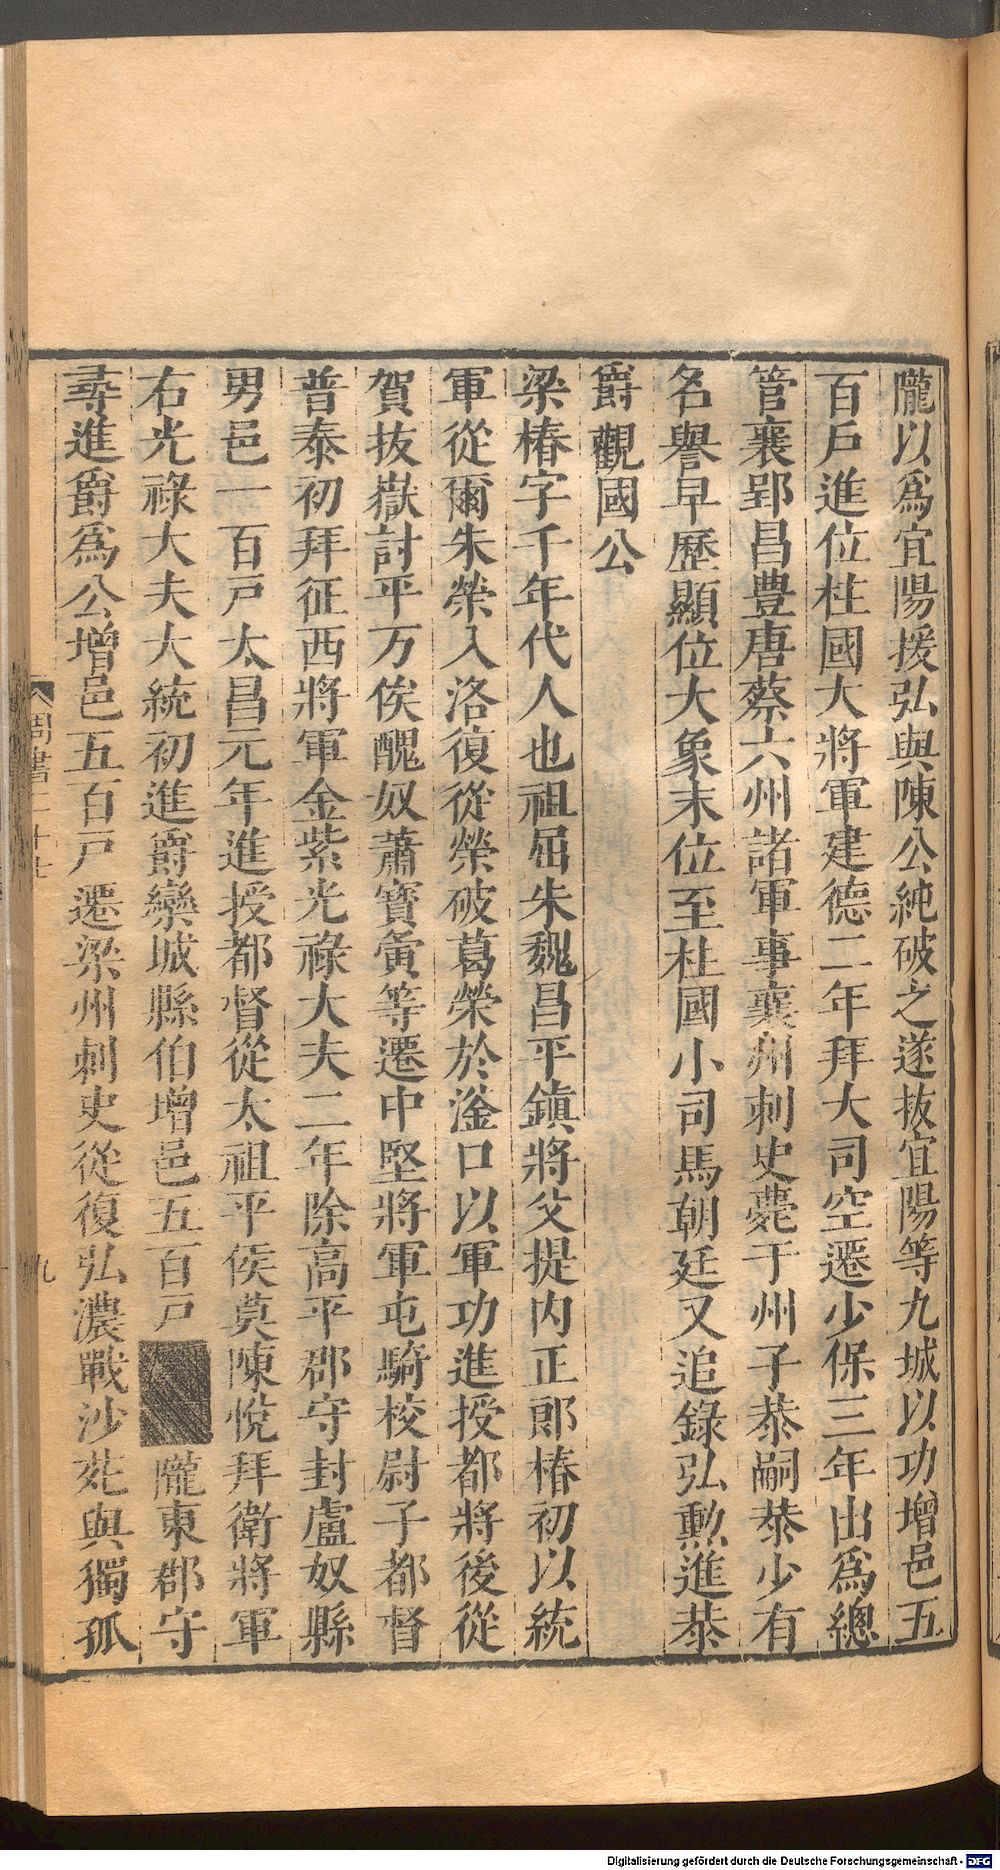 隴以爲宜陽援弘與陳公純破之遂拔宜陽等九城以功增邑五
百戶進位柱國大將軍建德二年拜大司空遷少保三年出爲總
管襄郢昌豐唐蔡六州諸軍事襄州刺史薨于州子恭嗣恭少有
名譽早歷顯位大象末位至柱國小司馬朝廷又追錄弘勳進恭
爵觀國公
梁椿字千年代人也祖屈朱魏昌平鎮將父提內正郎椿初以統
軍從爾朱榮入洛復從榮破葛榮於滏口以軍功進授都將後從
賀拔嶽討平万俟醜奴蕭寶夤等遷中堅將軍屯騎校尉子都督
普泰初拜征西將軍金紫光祿大夫二年除高平郡守封盧奴縣
男邑一百戶太昌元年進授都督從太祖平侯莫陳悅拜衛將軍
右光祿大夫大統初進爵欒城縣伯增邑五百戶隴東郡守
尋進爵爲公增邑五百戶遷梁州刺史從復弘濃戰沙苑與獨孤
周書二十七
九
Digitalisierung gefördert durch die Deutsche Forschungsgemeinschaft - DFG